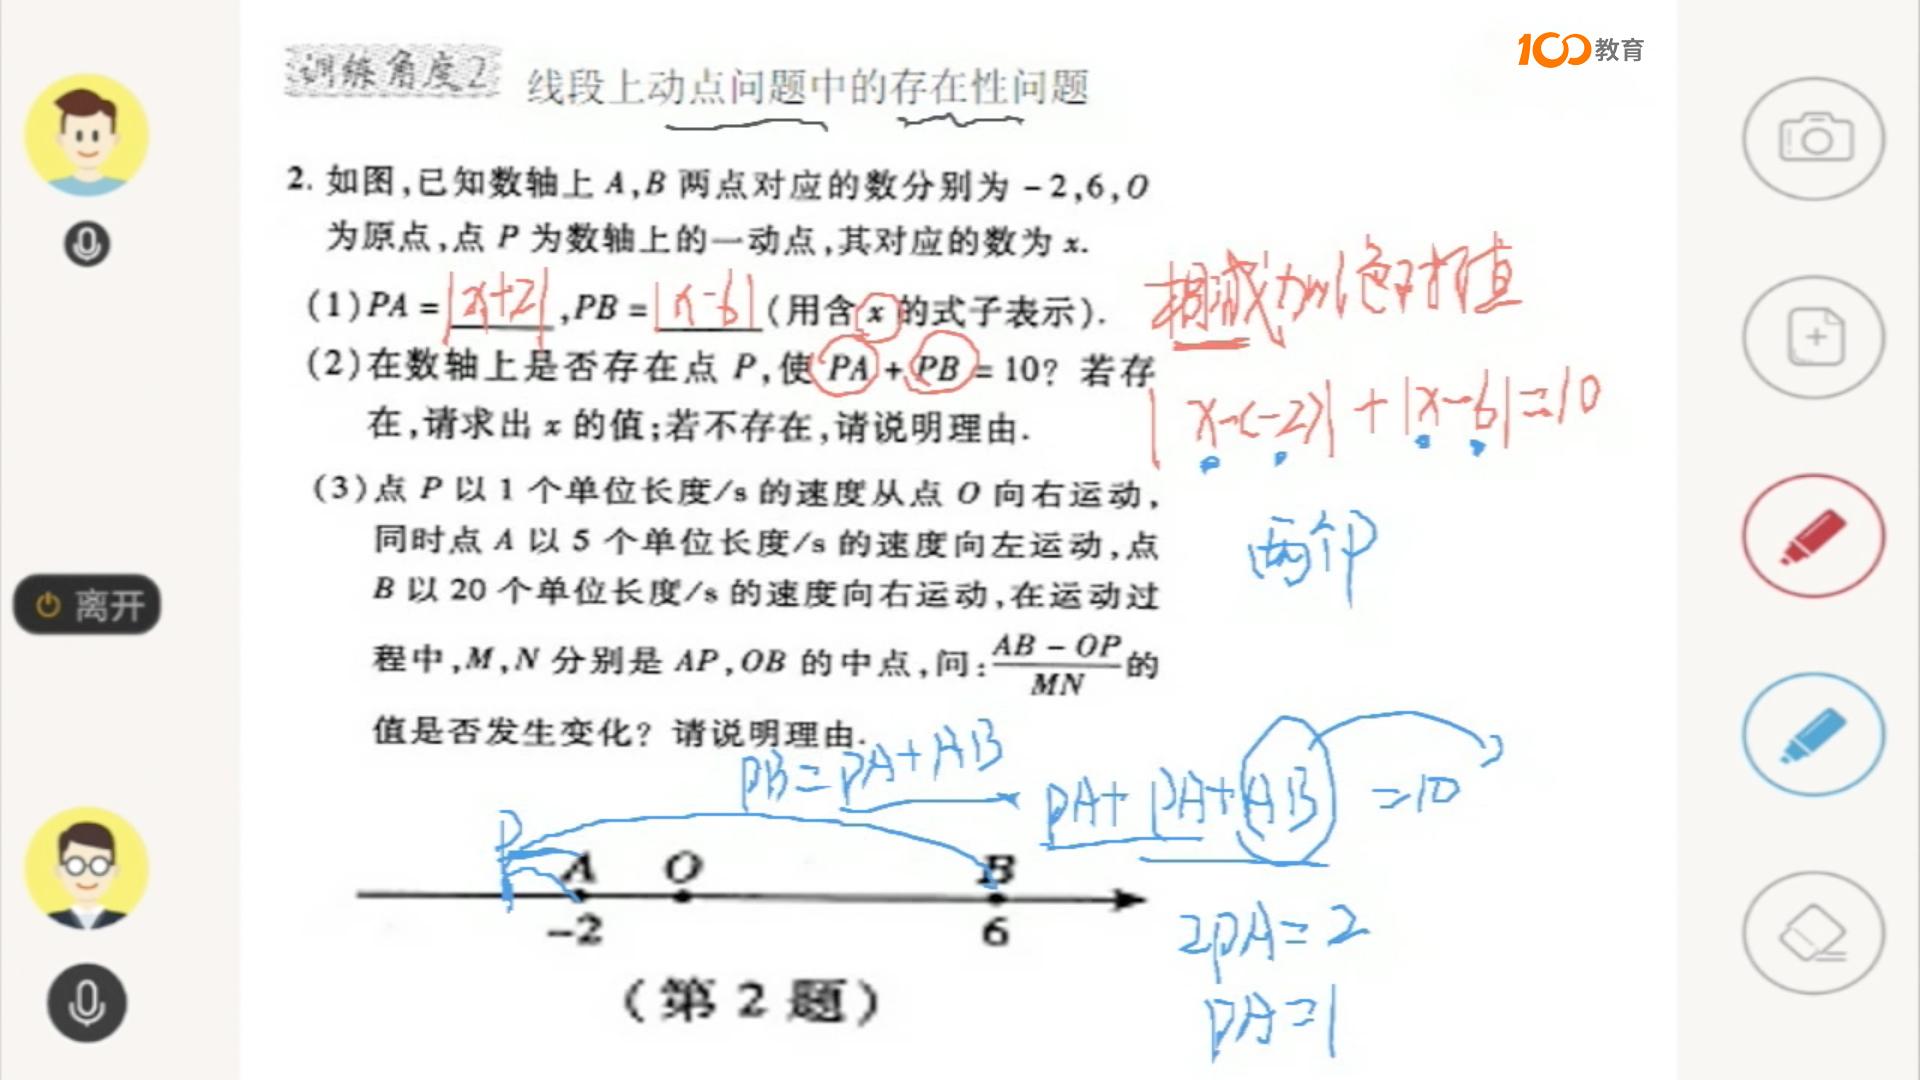 训练角度2 线段上动点问题中的存在性问题
100教育
2. 如图,已知数轴上 A,B 两点对应的数分别为 -2,6,O
为原点,点 P 为数轴上的一动点,其对应的数为 x.
(1)PA=|x+2|,PB=|x-6|(用含 x 的式子表示).
相减加绝对值
(2)在数轴上是否存在点 P,使 PA+PB=10? 若存
在,请求出 x 的值;若不存在,请说明理由.
|x-(-2)|+|x-6|=10
(3)点 P 以 1 个单位长度/s 的速度从点 O 向右运动,
同时点 A 以 5 个单位长度/s 的速度向左运动,点
B 以 20 个单位长度/s 的速度向右运动,在运动过
程中,M,N 分别是 AP,OB 的中点,问:(AB-OP)/MN 的
值是否发生变化? 请说明理由.
两个P
PB=PA+AB
PA+PA+AB=10
2PA=2
PA=1
P A O B
-2 6
(第 2 题)
离开